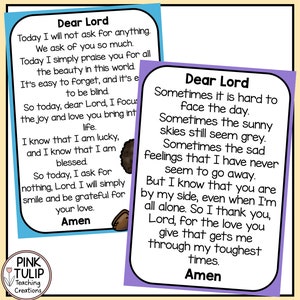 Dear Lord
Today I will not ask for anything.
We ask of you so much.
Today I simply praise you for all
the beauty in this world.
It's easy to forget, and it's e
to be blind.
So today, dear Lord, I focus
the joy and love you bring int
life.
I know that I am lucky,
and I know that I am
blessed.
So today, I ask for
nothing, Lord. I will simply
smile and be grateful for
your love.
Amen
Dear Lord
Sometimes it is hard to
face the day.
Sometimes the sunny
skies still seem grey.
Sometimes the sad
feelings that I have never
seem to go away.
But I know that you are
by my side, even when I'm
all alone. So I thank you,
Lord, for the love you
give that gets me
through my toughest
times.
Amen
PINK
TULIP
Teaching
Creations